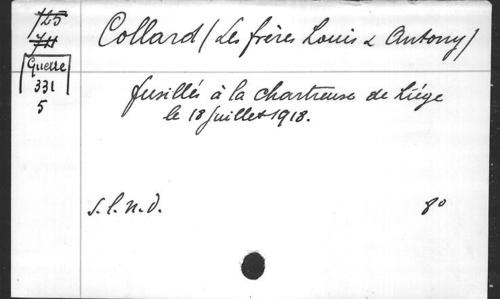 125
711
Guerre
331
5
Collard (Les frères Louis & Antony)
fusillés à la chartreuse de Liége
le 18 juillet 1918.
s.l.n.d.
8°